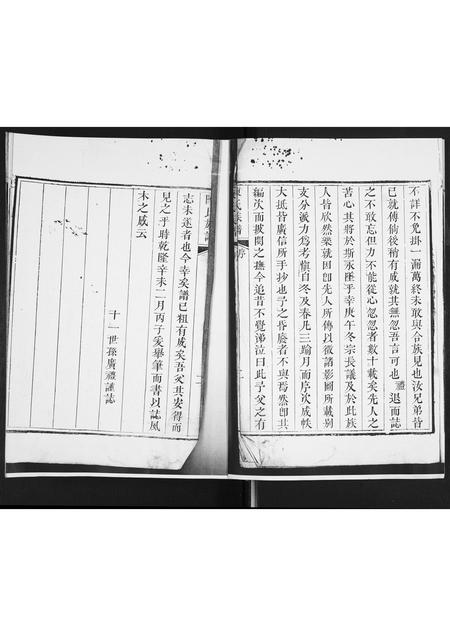 不詳不免掛一漏萬終未敢與合族見也汝兄弟皆
已就傅倘後稍有成就其無忽吾言可也禮退而誌
之不敢忘但力不能從心忽忽者數十載矣先人之
苦心其將於斯永墜乎幸庚午冬宗長議及於此族
人皆欣然樂就因卽先人所傳以徵諸影圖所載別
支分派力爲考慎自冬及春凡三踰月而序次成帙
大抵皆廣信所手抄也予之昏庸者不與焉然卽其
編次而披閱之撫今追昔不覺涕泣曰此予父之有
陳氏族譜 序
志未逮者也今幸矣譜已粗有成矣吾父其安得而
見之乎時乾隆辛未二月丙子爰舉筆而書以誌風
木之感云
十一世孫廣禮謹誌